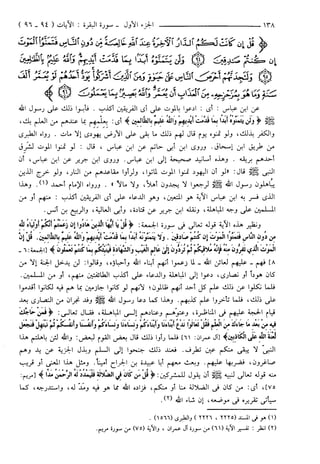 ١٣٨ الجزء الأول - سورة البقرة : الآيات (٩٤ - ٩٦)
﴿ قُلْ إِن كَانَتْ لَكُمُ الدَّارُ الْآخِرَةُ عِندَ اللَّهِ خَالِصَةً مِّن دُونِ النَّاسِ فَتَمَنَّوُا الْمَوْتَ
إِن كُنتُمْ صَادِقِينَ وَلَن يَتَمَنَّوْهُ أَبَدًا بِمَا قَدَّمَتْ أَيْدِيهِمْ وَاللَّهُ عَلِيمٌ بِالظَّالِمِينَ
وَلَتَجِدَنَّهُمْ أَحْرَصَ النَّاسِ عَلَى حَيَاةٍ وَمِنَ الَّذِينَ أَشْرَكُوا يَوَدُّ أَحَدُهُمْ لَوْ يُعَمَّرُ أَلْفَ
سَنَةٍ وَمَا هُوَ بِمُزَحْزِحِهِ مِنَ الْعَذَابِ أَن يُعَمَّرَ وَاللَّهُ بَصِيرٌ بِمَا يَعْمَلُونَ ﴾
عن ابن عباس : أي : ادعوا بالموت على أي الفريقين أكذب . فأبوا ذلك على رسول الله
ﷺ ﴿ ولن يتمنوه أبدا بما قدمت أيديهم والله عليم بالظالمين ﴾ أي : بعلمهم بما عندهم من العلم بك،
والكفر بذلك، ولو تمنوه يوم قال لهم ذلك ما بقي على الأرض يهودي إلا مات . رواه الطبري
من طريق ابن إسحاق. وروى ابن أبي حاتم عن ابن عباس ، قال : لو تمنوا الموت لشرق
أحدهم بريقه . وهذه أسانيد صحيحة إلى ابن عباس. وروى ابن جرير عن ابن عباس، أن
النبي ﷺ قال: «لو أن اليهود تمنوا الموت لماتوا، ولرأوا مقاعدهم من النار، ولو خرج الذين
يباهلون رسول الله ﷺ لرجعوا لا يجدون أهلاً، ولا مالاً» . ورواه الإمام أحمد (١). وهذا
الذي فسر به ابن عباس الآية هو المتعين، وهو الدعاء على أي الفريقين أكذب : منهم أو من
المسلمين على وجه المباهلة، ونقله ابن جرير عن قتادة، وأبي العالية، والربيع بن أنس.
ونظير هذه الآية قوله تعالى في سورة الجمعة: ﴿ قل يا أيها الذين هادوا إن زعمتم أنكم أولياء لله
من دون الناس فتمنوا الموت إن كنتم صادقين . ولا يتمنونه أبدا بما قدمت أيديهم والله عليم بالظالمين . قل إن
الموت الذي تفرون منه فإنه ملاقيكم ثم تردون إلى عالم الغيب والشهادة فينبئكم بما كنتم تعملون ﴾ [الجمعة: ٦ -
٨] فهم ـ عليهم لعائن الله ـ لما زعموا أنهم أبناء الله وأحباؤه، وقالوا: لن يدخل الجنة إلا من
كان هوداً أو نصارى، دعوا إلى المباهلة والدعاء على أكذب الطائفتين منهم، أو من المسلمين.
فلما نكلوا عن ذلك علم كل أحد أنهم ظالمون؛ لأنهم لو كانوا جازمين بما هم فيه لكانوا أقدموا
على ذلك، فلما تأخروا علم كذبهم. وهذا كما دعا رسول الله ﷺ وفد نجران من النصارى بعد
قيام الحجة عليهم في المناظرة، وعتوّهم وعنادهم إلى المباهلة، فقال تعالى: ﴿ فمن حاجك
فيه من بعد ما جاءك من العلم فقل تعالوا ندع أبناءنا وأبناءكم ونساءنا ونساءكم وأنفسنا وأنفسكم ثم نبتهل فنجعل
لعنة الله على الكاذبين ﴾ [آل عمران: ٦١] فلما رأوا ذلك قال بعض القوم لبعض: والله لئن باهلتم هذا
النبيّ لا يبقى منكم عين تطرف. فعند ذلك جنحوا إلى السلم وبذل الجزية عن يد وهم
صاغرون، فضربها عليهم. وبعث معهم أبا عبيدة بن الجراح أميناً. ومثل هذا المعنى أو قريب
منه قوله تعالى لنبيه ﷺ أن يقول للمشركين: ﴿ قل من كان في الضلالة فليمدد له الرحمن مدا ﴾ [مريم:
٧٥]، أي: من كان في الضلالة منا أو منكم، فزاده الله مما هو فيه ومدّ له، واستدرجه، كما
سيأتي تقريره في موضعه، إن شاء الله (٢).
(١) هو في المسند (٢٢٢٥ ، ٢٢٢٦) والطبري (١٥٦٦) .
(٢) انظر : تفسير الآية (٦١) من سورة آل عمران ، والآية (٧٥) من سورة مريم.